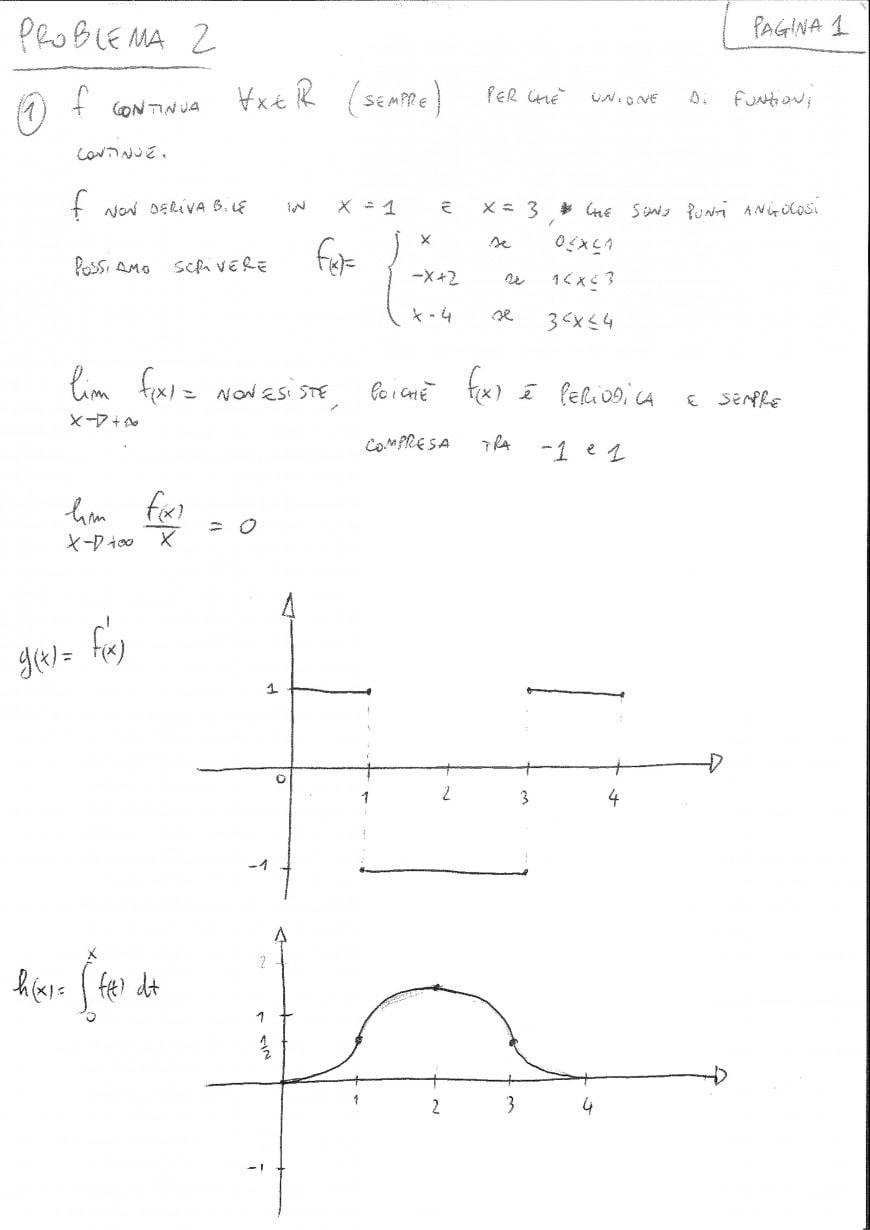 PROBLEMA 2
PAGINA 1
① f CONTINUA ∀x∈ℝ (SEMPRE) PERCHÈ UNIONE DI FUNZIONI
CONTINUE.
f NON DERIVABILE IN x = 1 E x = 3, CHE SONO PUNTI ANGOLOSI
POSSIAMO SCRIVERE f(x)= { x se 0≤x≤1
-x+2 se 1<x≤3
x-4 se 3<x≤4
lim f(x) = NON ESISTE, POICHÈ f(x) È PERIODICA E SEMPRE
x→+∞
COMPRESA TRA -1 e 1
lim f(x)/x = 0
x→+∞
g(x) = f'(x)
1
0 1 2 3 4
-1
h(x) = ∫₀ˣ f(t) dt
2
1
1/2
1 2 3 4
-1